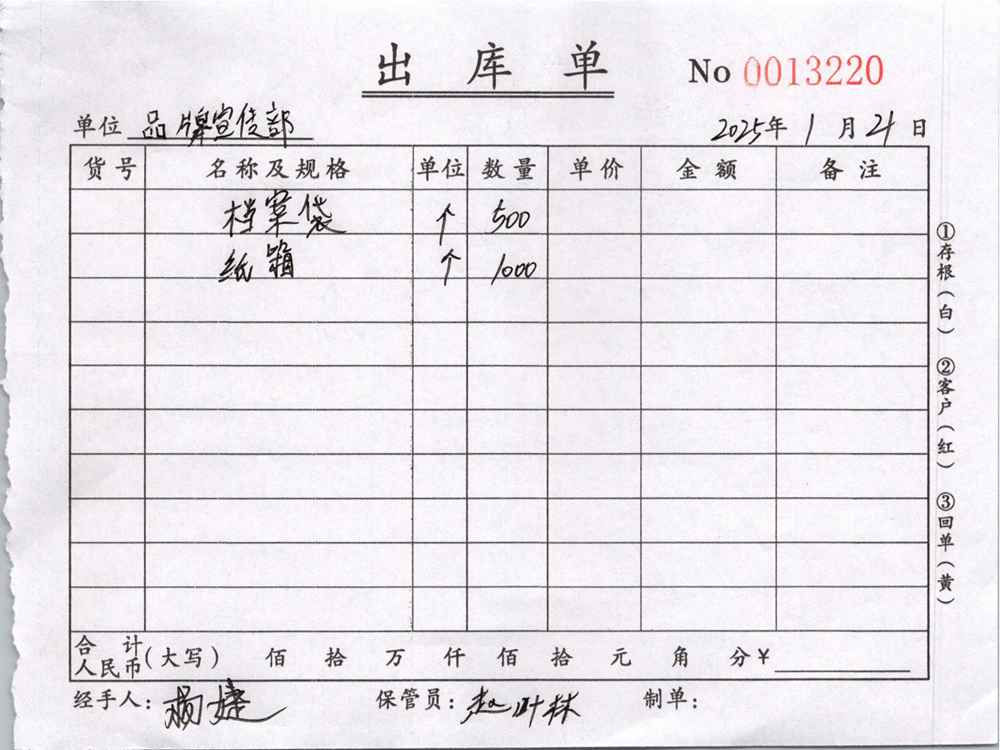 出库单
No 0013220
单位 品牌宣传部 2025年 1月21日
货号 名称及规格 单位 数量 单价 金额 备注
档案袋 个 500
纸箱 个 1000
合计人民币(大写) 佰 拾 万 仟 佰 拾 元 角 分 ¥
经手人: 杨婕 保管员: 赵叶林 制单:
①存根(白) ②客户(红) ③回单(黄)